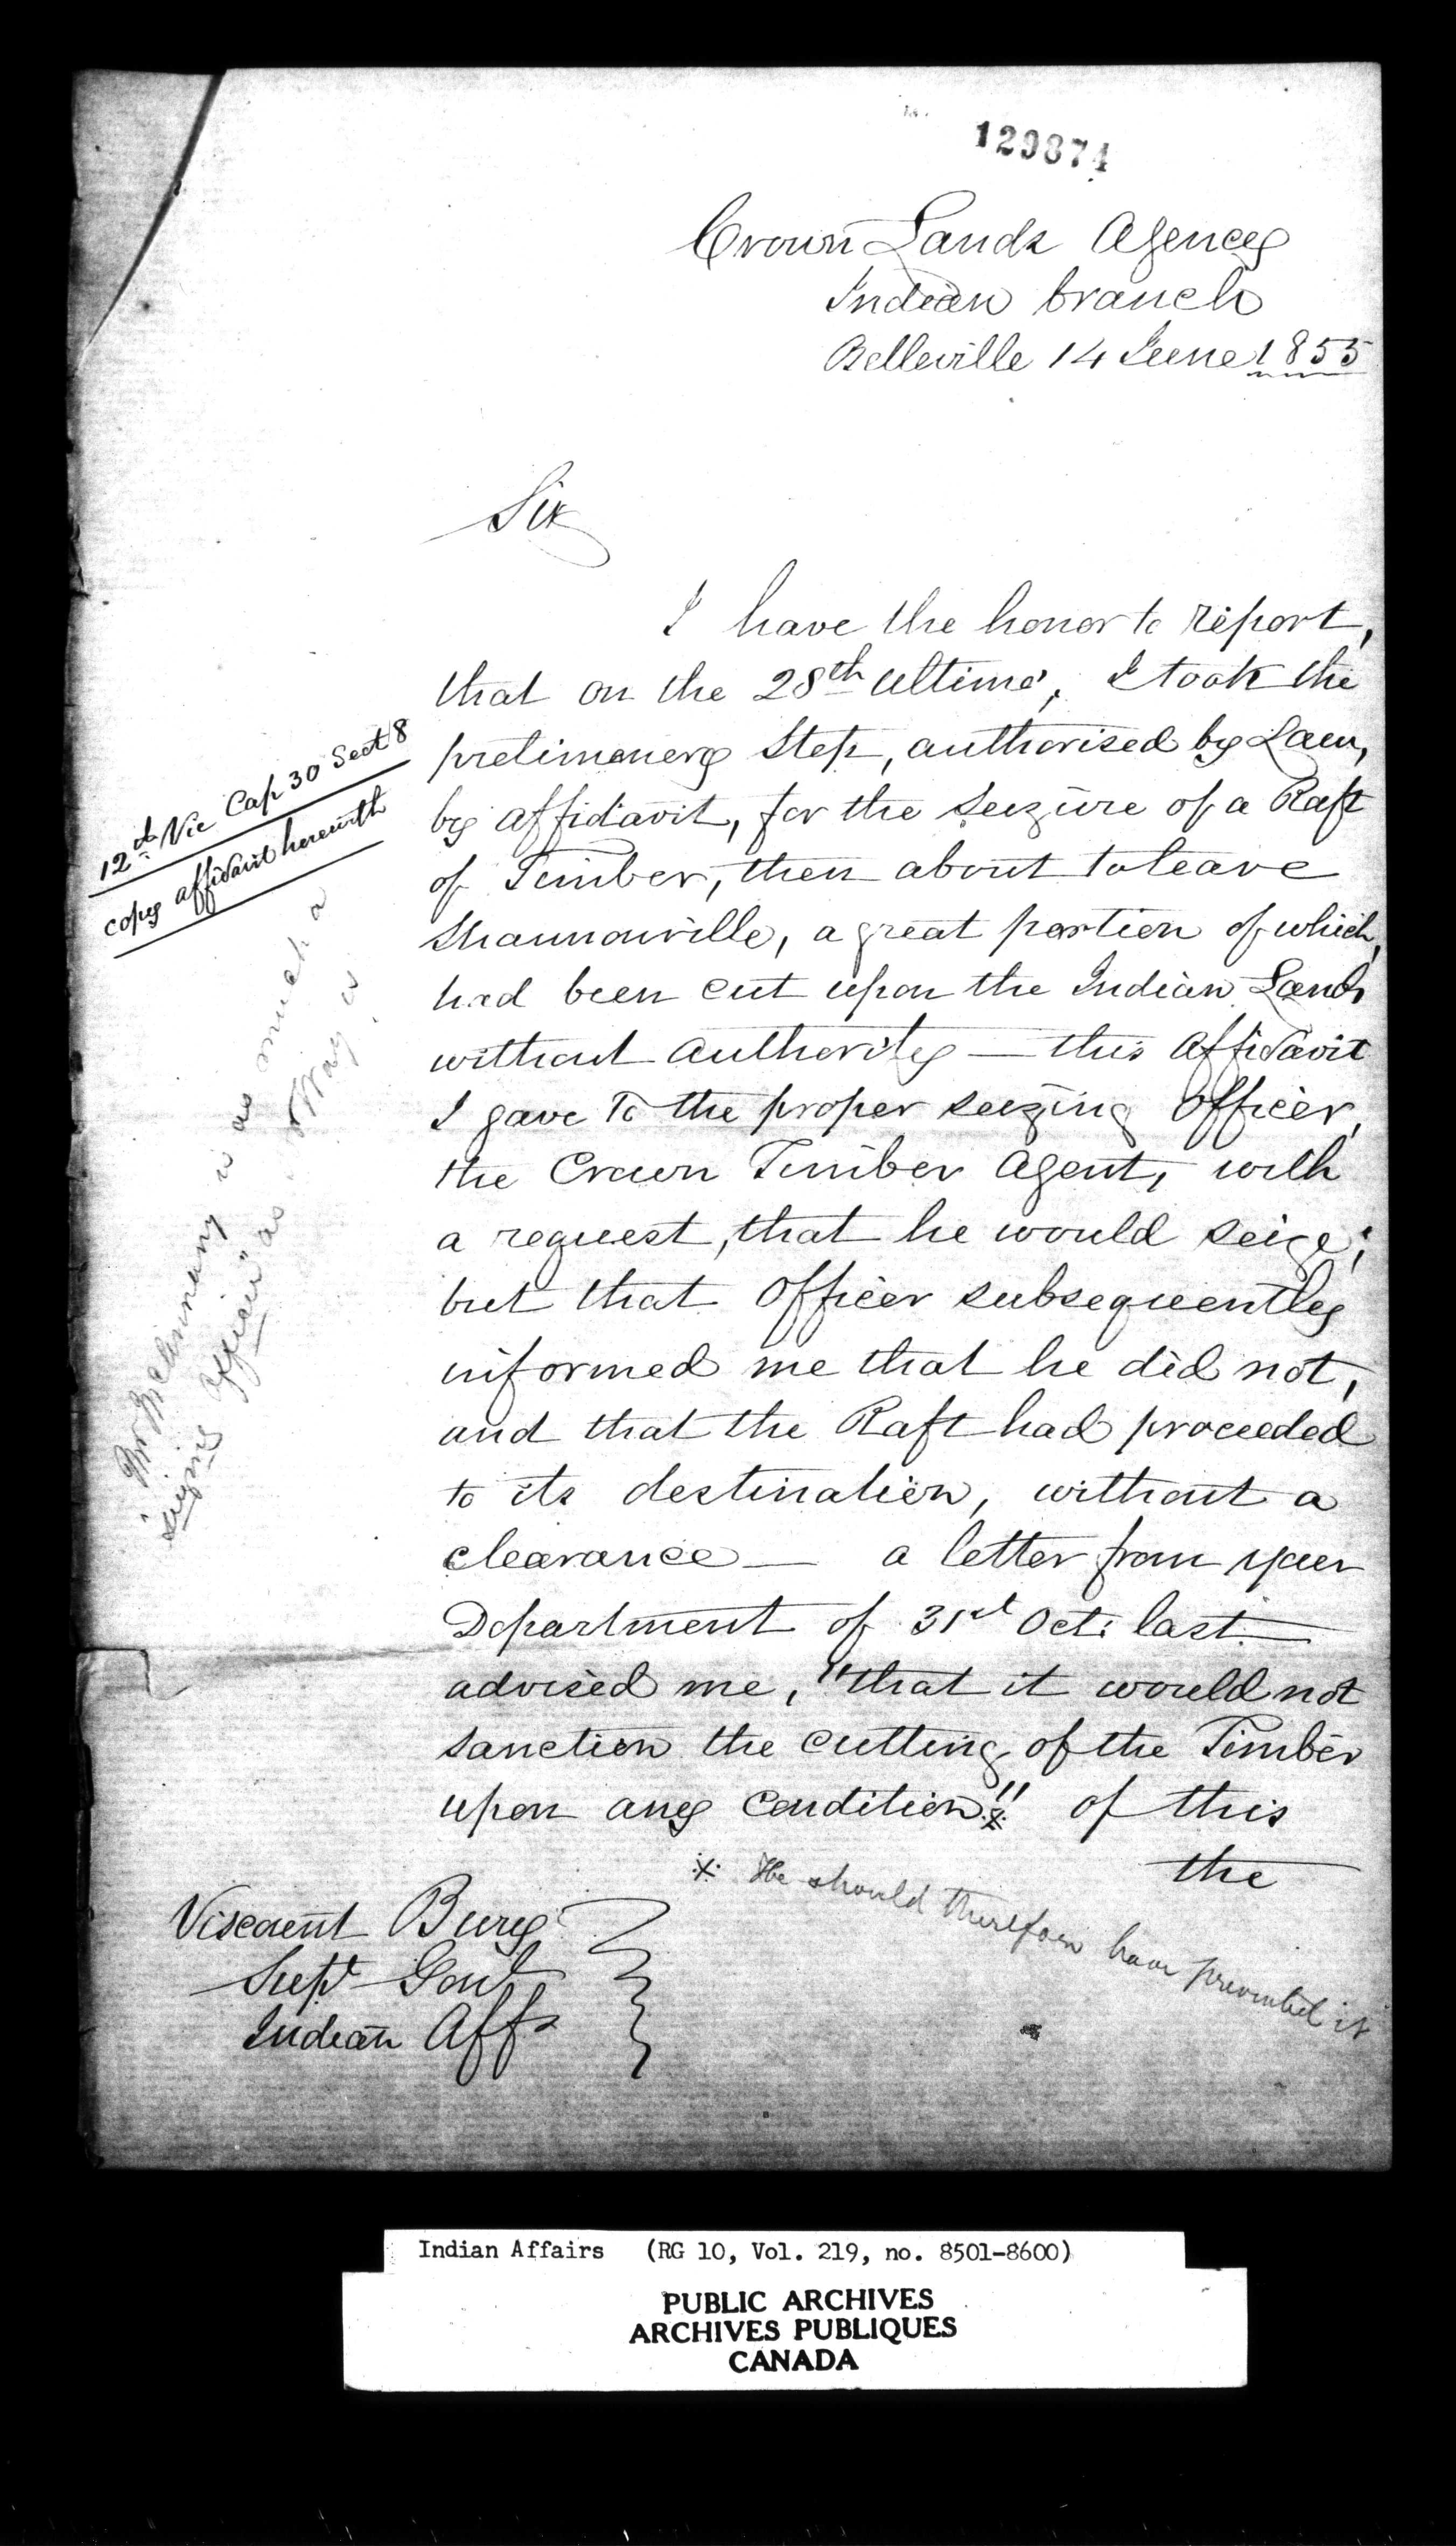 129874
Crown Lands Agency
Indian branch
Belleville 14 June 1855
Sir
I have the honor to report,
that on the 28th Ultimo, I took the
prelimenery Step, authorised by Law,
by affidavit, for the seizure of a Raft
of Timber, then about to leave
Shannonville, a great portion of which,
had been cut upon the Indian Lands
without authority — this affidavit
I gave to the proper seezing Officer,
the Crown Timber Agent, with
a request, that he would seize;
but that Officer subsequently
informed me that he did not,
and that the Raft had proceeded
to its destination, without a
clearance — a letter from your
Department of 31st Oct: last
advised me, "that it would not
sanction the cutting of the Timber
upon any condition"※ of this
the
※ He should therefore have prevented it
12th Vic Cap 30 Sect 8
copy affidavit herewith
Mr is as much a
"seizing officer" as is
Viscount Bury
Supt Genl
Indian Affs
Indian Affairs (RG 10, Vol. 219, no. 8501-8600)
PUBLIC ARCHIVES
ARCHIVES PUBLIQUES
CANADA